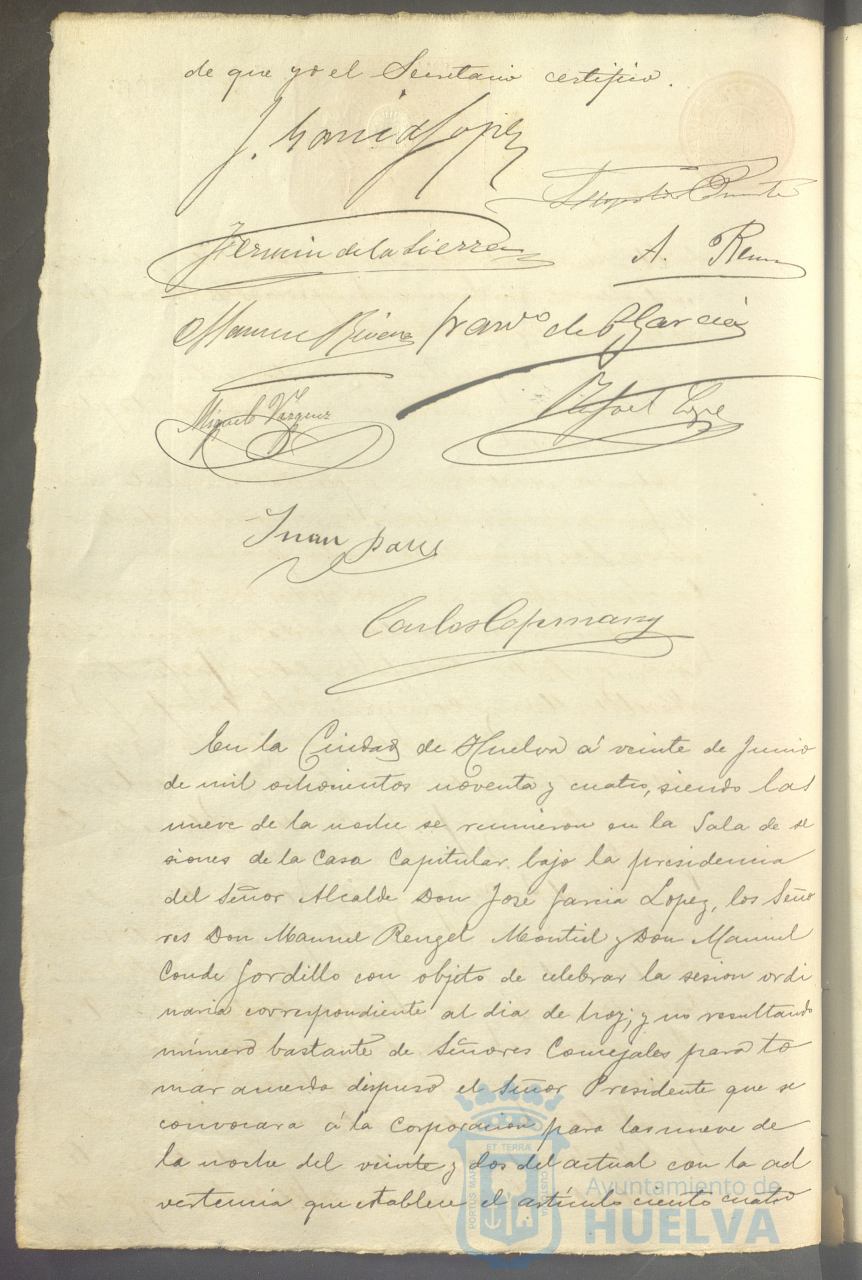 de que yo el Secretario certifico.
J. Garcia Lopez
Fermin de la Sierra
A.
Manuel Rivera Franco de P Garcia
Miguel Vazquez
Rafael Lope
Juan
Carlos
En la Ciudad de Huelva á veinte de Junio
de mil ochocientos noventa y cuatro, siendo las
nueve de la noche se reunieron en la Sala de se
siones de la Casa Capitular bajo la presidencia
del Señor Alcalde Don José Garcia Lopez, los Seño
res Don Manuel Rengel Montiel y Don Manuel
Conde Gordillo con objeto de celebrar la sesion ordi
naria correspondiente al dia de hoy; y no resultando
número bastante de Señores Concejales para to
mar acuerdo dispuso el Señor Presidente que se
convocara á la Corporacion para las nueve de
la noche del veinte y dos del actual con la ad
vertencia que establece el artículo ciento cuatro
PORTUS MARIS ET TERRA CUSTODIA
Ayuntamiento de
HUELVA